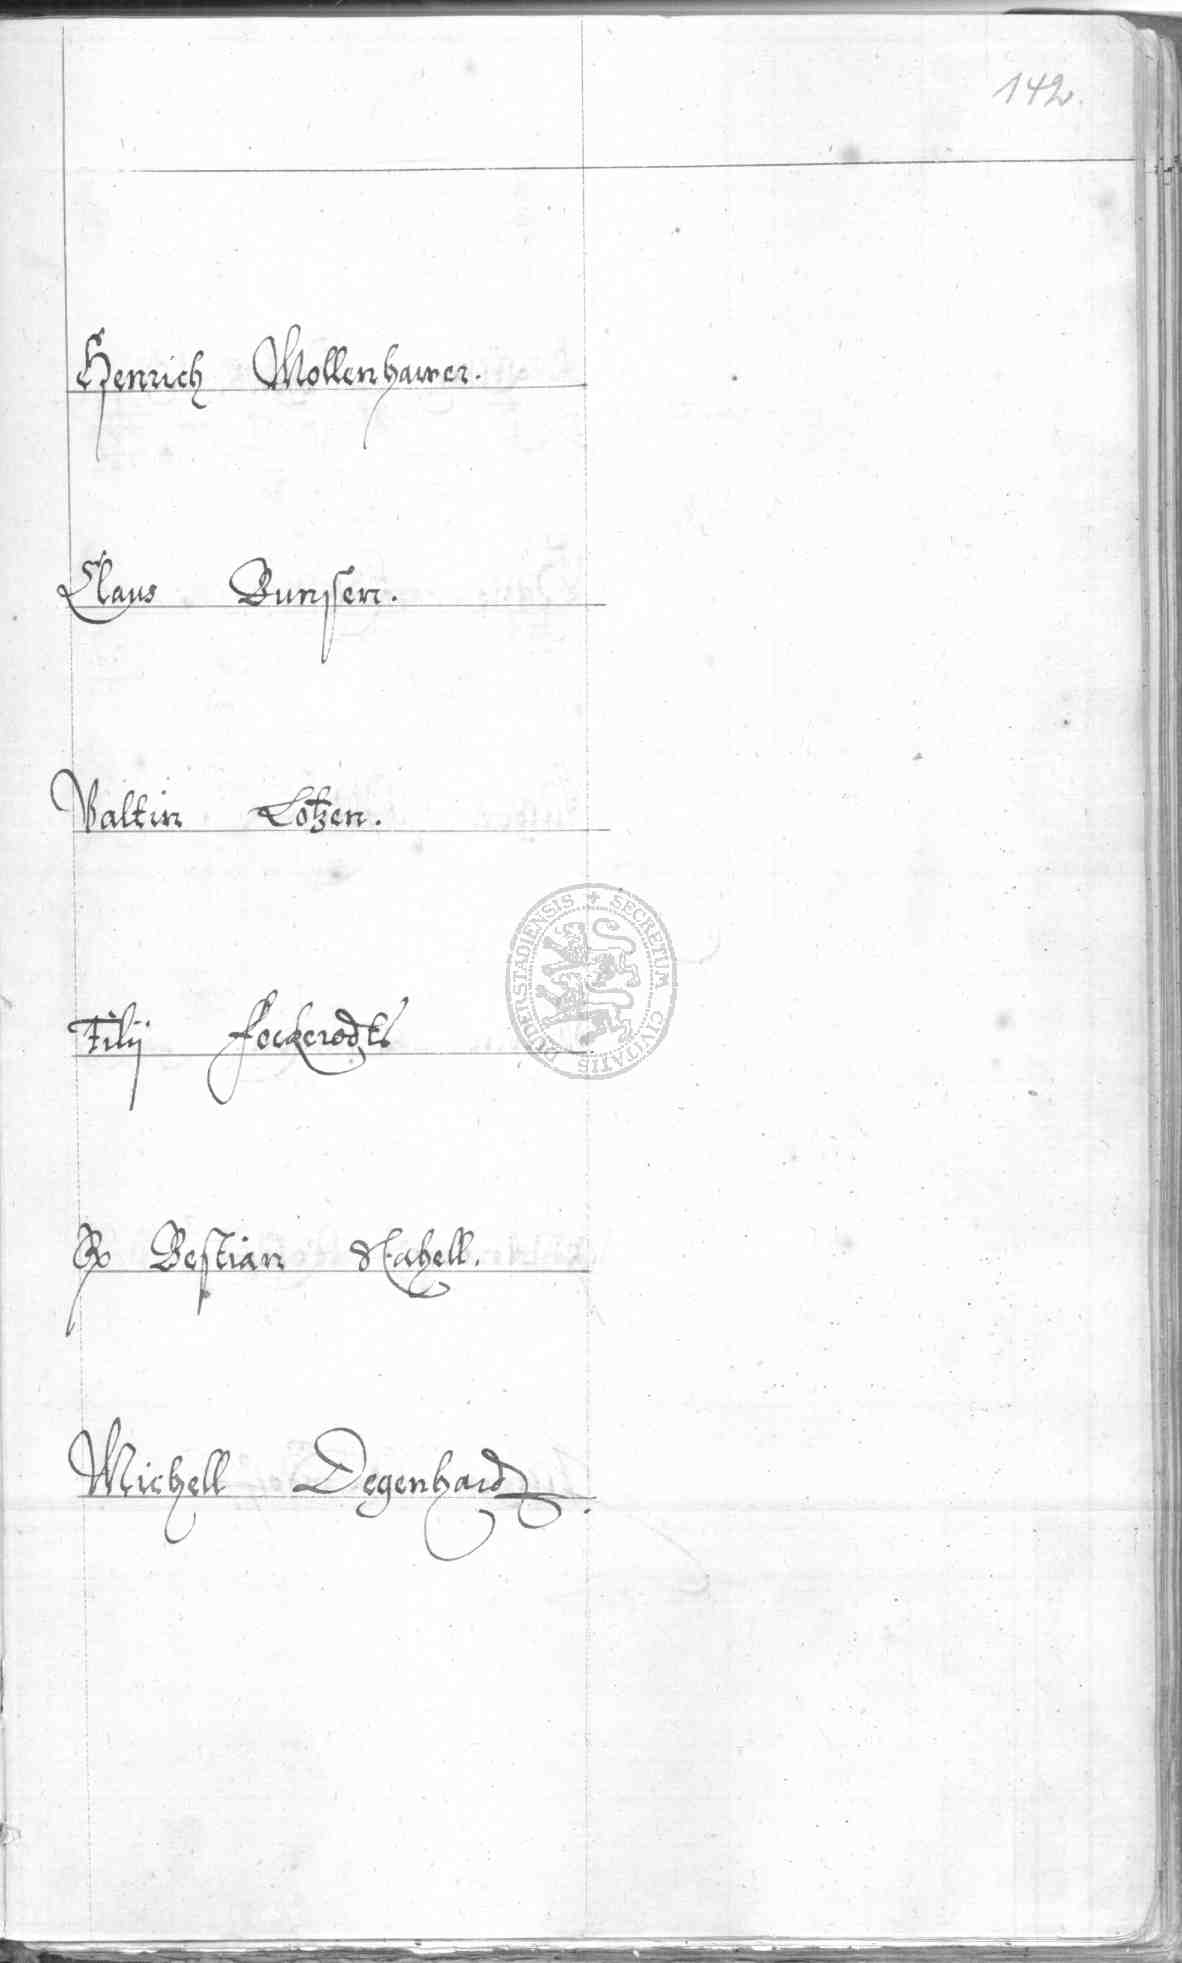 142.
Henrich Mollenhawer.
Claus Bunssen.
Valtin Lotzen.
Filij Feckerodts
Bestian Stahell.
Michell Degenhard
SECRETUM CIVITATIS DUDERSTADIENSIS